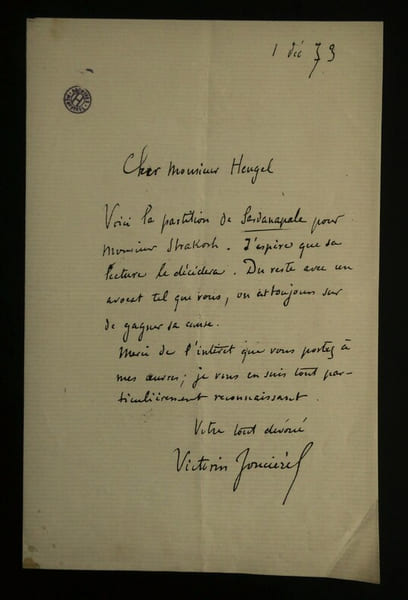 1 déc 73
Cher Monsieur Heugel
Voici la partition de Sardanapale pour
Monsieur Strakosh. J'espère que sa
lecture le décidera. Du reste avec un
avocat tel que vous, on est toujours sur
de gagner sa cause.
Merci de l'intérêt que vous portez à
mes œuvres; je vous en suis tout par-
ticulièrement reconnaissant.
Votre tout dévoué
Victorin Joncières